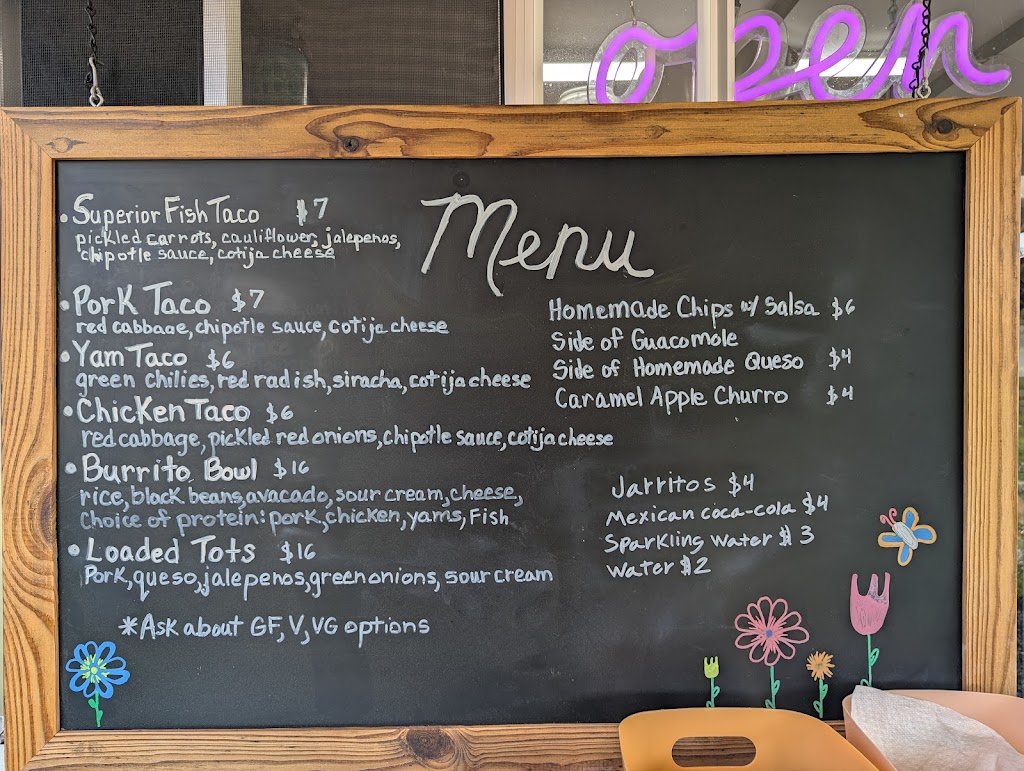 open
Menu
•Superior Fish Taco $7
pickled carrots, cauliflower, jalepenos,
chipotle sauce, cotija cheese
•Pork Taco $7
red cabbage, chipotle sauce, cotija cheese
•Yam Taco $6
green chilies, red radish, siracha, cotija cheese
•Chicken Taco $6
red cabbage, pickled red onions, chipotle sauce, cotija cheese
•Burrito Bowl $16
rice, black beans, avacado, sour cream, cheese,
Choice of protein: pork, chicken, yams, Fish
•Loaded Tots $16
Pork, queso, jalepenos, green onions, sour cream
*Ask about GF, V, VG options
Homemade Chips w/ Salsa $6
Side of Guacomole
Side of Homemade Queso $4
Caramel Apple Churro $4
Jarritos $4
Mexican coca-cola $4
Sparkling water $3
water $2